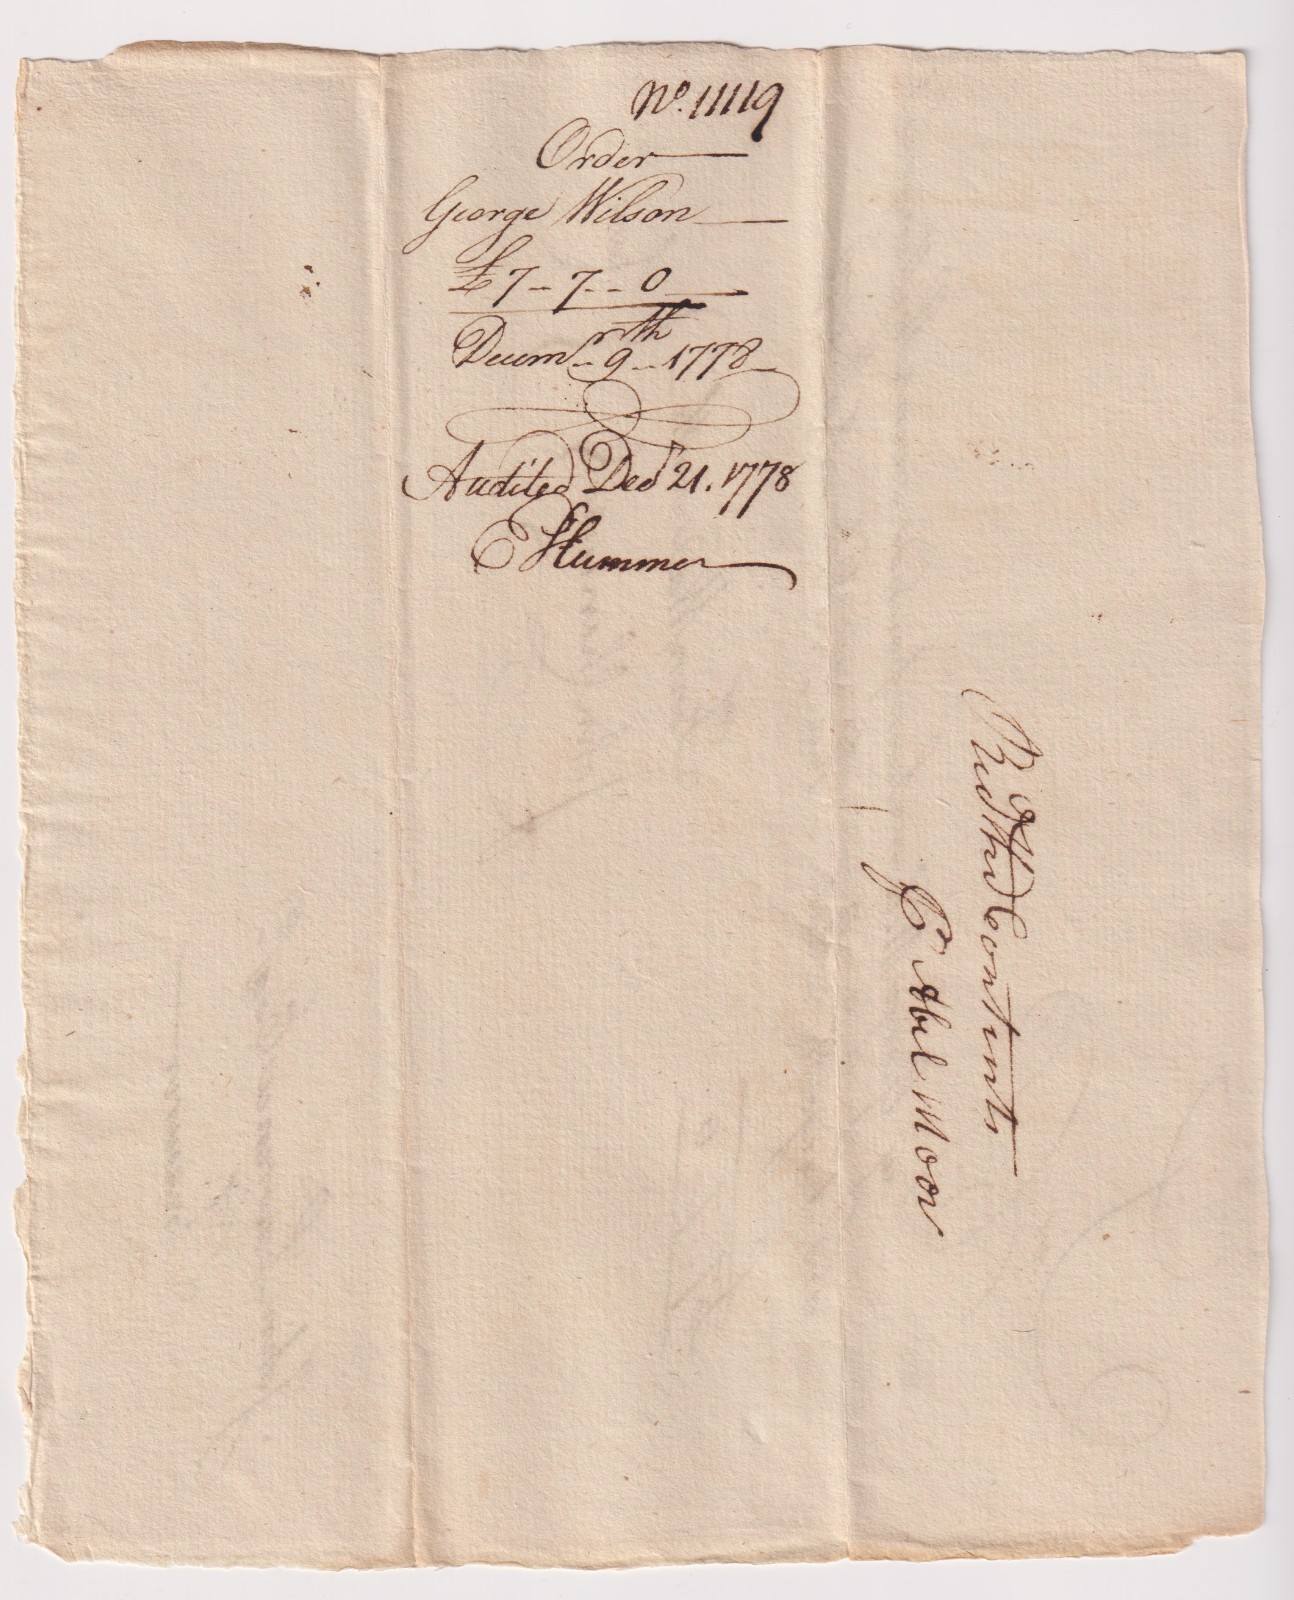 No. 11119
Order
George Wilson
£7 - 7 - - 0
Decemr 9th 1778
Audited Decr 21. 1778
E Hummer
Recd the Contents
Abel Moor